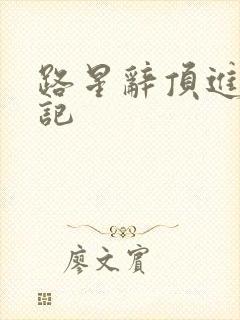 路星辭頂進
記
廖文賓